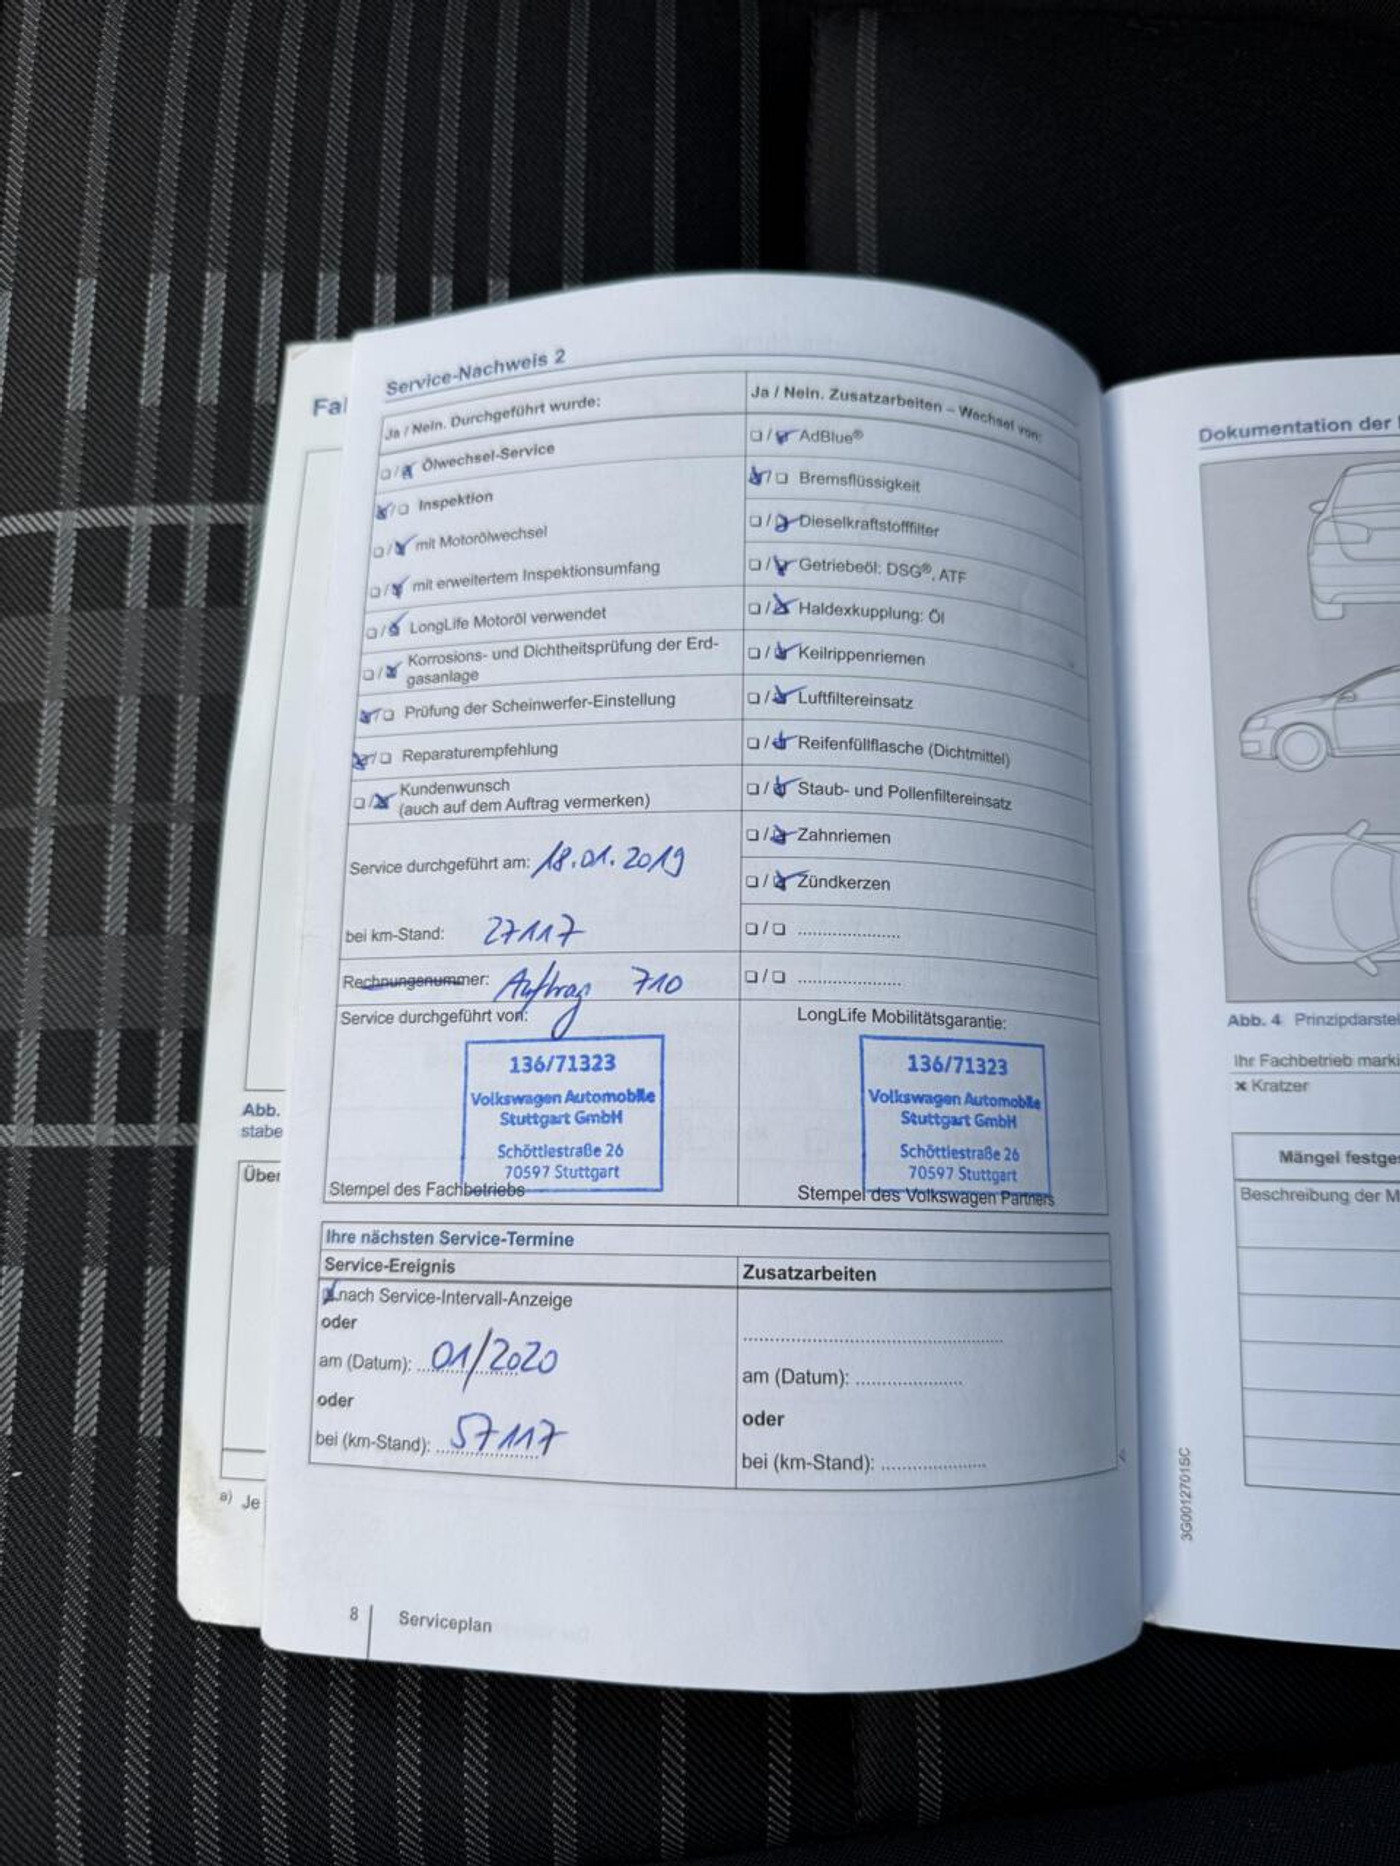 Fal
Service-Nachweis 2
Ja / Nein. Durchgeführt wurde:
❏/❏ Ölwechsel-Service
❏/❏ Inspektion
❏/❏ mit Motorölwechsel
❏/❏ mit erweitertem Inspektionsumfang
❏/❏ LongLife Motoröl verwendet
❏/❏ Korrosions- und Dichtheitsprüfung der Erd-
gasanlage
❏/❏ Prüfung der Scheinwerfer-Einstellung
❏/❏ Reparaturempfehlung
❏/❏ Kundenwunsch
(auch auf dem Auftrag vermerken)
Service durchgeführt am: 18.01.2019
bei km-Stand: 27117
Rechnungenummer: Auftrag 710
Service durchgeführt von:
136/71323
Volkswagen Automobile
Stuttgart GmbH
Schöttlestraße 26
70597 Stuttgart
Stempel des Fachbetriebs
Ja / Nein. Zusatzarbeiten – Wechsel von:
❏/❏ AdBlue®
❏/❏ Bremsflüssigkeit
❏/❏ Dieselkraftstofffilter
❏/❏ Getriebeöl: DSG®, ATF
❏/❏ Haldexkupplung: Öl
❏/❏ Keilrippenriemen
❏/❏ Luftfiltereinsatz
❏/❏ Reifenfüllflasche (Dichtmittel)
❏/❏ Staub- und Pollenfiltereinsatz
❏/❏ Zahnriemen
❏/❏ Zündkerzen
❏/❏ ......................
❏/❏ ......................
LongLife Mobilitätsgarantie:
136/71323
Volkswagen Automobile
Stuttgart GmbH
Schöttlestraße 26
70597 Stuttgart
Stempel des Volkswagen Partners
Ihre nächsten Service-Termine
Service-Ereignis
nach Service-Intervall-Anzeige
oder
am (Datum): 01/2020
oder
bei (km-Stand): 57117
Zusatzarbeiten
......................
am (Datum): ......................
oder
bei (km-Stand): ......................
8 Serviceplan
Abb.
stabe
Über
a) Je
Dokumentation der
Abb. 4 Prinzipdarstel
Ihr Fachbetrieb marki
× Kratzer
Mängel festges
Beschreibung der M
3G0012701SC